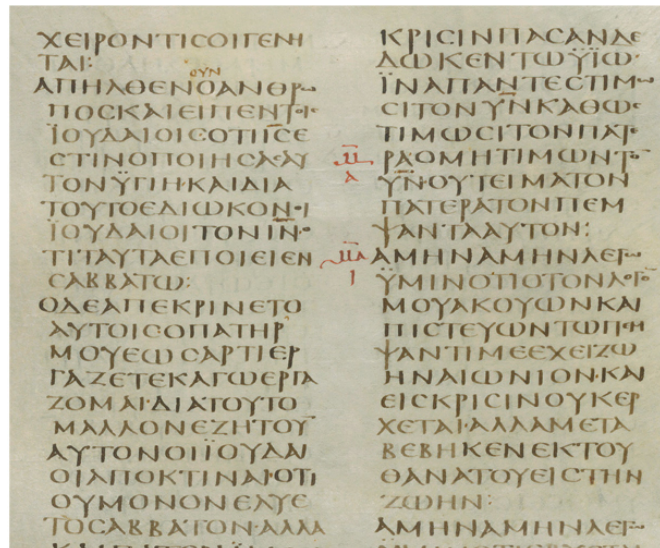 ΧΕΙΡΟΝΤΙϹΟΙΓΕΝΗ
ΤΑΙ:
ΟΥΝ
ΑΠΗΛΘΕΝΟΑΝΘΡω
ΠΟϹΚΑΙΕΙΠΕΝΤΟΙϹ
ΪΟΥΔΑΙΟΙϹΟΤΙΙ̅Ϲ̅Ε
ϹΤΙΝΟΠΟΙΗϹΑϹΑΥ
ΤΟΝΫΓΙΗ·ΚΑΙΔΙΑ
ΤΟΥΤΟΕΔΙΩΚΟΝΟΙ
ΪΟΥΔΑΙΟΙΤΟΝΙ̅Ν̅·Ο
ΤΙΤΑΥΤΑΕΠΟΙΕΙΕΝ
ϹΑΒΒΑΤΩ:
ΟΔΕΑΠΕΚΡΙΝΕΤΟ
ΑΥΤΟΙϹΟΠΑΤΗΡ
ΜΟΥΕΩϹΑΡΤΙΕΡ
ΓΑΖΕΤΕΚΑΓΩΕΡΓΑ
ΖΟΜΑΙ·ΔΙΑΤΟΥΤΟ
ΜΑΛΛΟΝΕΖΗΤΟΥ
ΑΥΤΟΝΟΙΪΟΥΔΑΙ
ΟΙΑΠΟΚΤΙΝΑΙ·ΟΤΙ
ΟΥΜΟΝΟΝΕΛΥΕ
ΤΟϹΑΒΒΑΤΟΝ·ΑΛΛΑ
ΚΡΙϹΙΝΠΑϹΑΝΔΕ
ΔΩΚΕΝΤΩΫΪΩ·
ΪΝΑΠΑΝΤΕϹΤΙΜω
ϹΙΤΟΝΥ̅Ν̅ΚΑΘΩϹ
ΤΙΜΩϹΙΤΟΝΠΑΤΕ
Μ̅
Α
ΡΑΟΜΗΤΙΜΩΝΤΟ
Υ̅Ν̅·ΟΥΤΕΙΜΑΤΟΝ
ΠΑΤΕΡΑΤΟΝΠΕΜ
ΨΑΝΤΑΑΥΤΟΝ:
Μ̅Α̅
Ι
ΑΜΗΝΑΜΗΝΛΕΓω
ΫΜΙΝΟΤΙΟΤΟΝΛΟΓΟ
ΜΟΥΑΚΟΥΩΝΚΑΙ
ΠΙϹΤΕΥΩΝΤΩΠΕΜ
ΨΑΝΤΙΜΕΕΧΕΙΖΩ
ΗΝΑΙΩΝΙΟΝ·ΚΑΙ
ΕΙϹΚΡΙϹΙΝΟΥΚΕΡ
ΧΕΤΑΙ·ΑΛΛΑΜΕΤΑ
ΒΕΒΗΚΕΝΕΚΤΟΥ
ΘΑΝΑΤΟΥΕΙϹΤΗΝ
ΖΩΗΝ:
ΑΜΗΝΑΜΗΝΛΕΓω